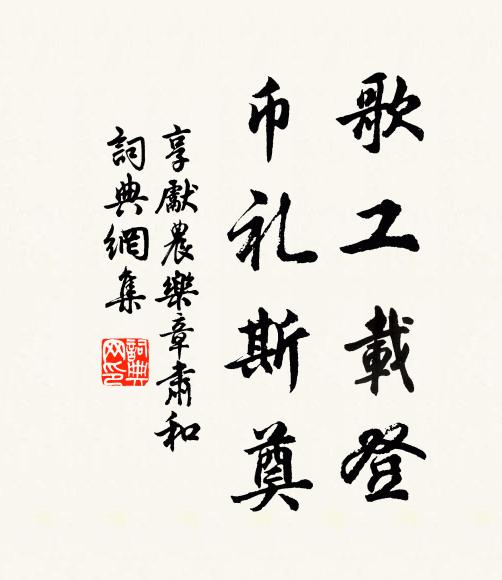 歌工載登
币礼斯奠
享獻農樂章肅和
詞典網集
詞典网印